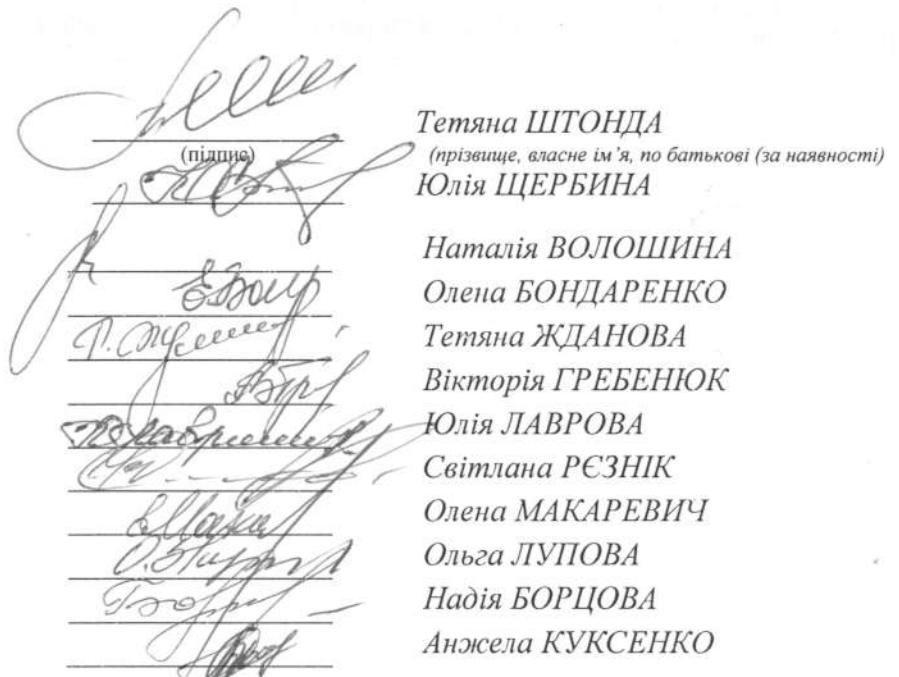 Тетяна ШТОНДА
(підпис) (прізвище, власне ім’я, по батькові (за наявності)
Юлія ЩЕРБИНА
Наталія ВОЛОШИНА
Олена БОНДАРЕНКО
Тетяна ЖДАНОВА
Вікторія ГРЕБЕНЮК
Юлія ЛАВРОВА
Світлана РЄЗНІК
Олена МАКАРЕВИЧ
Ольга ЛУПОВА
Надія БОРЦОВА
Анжела КУКСЕНКО